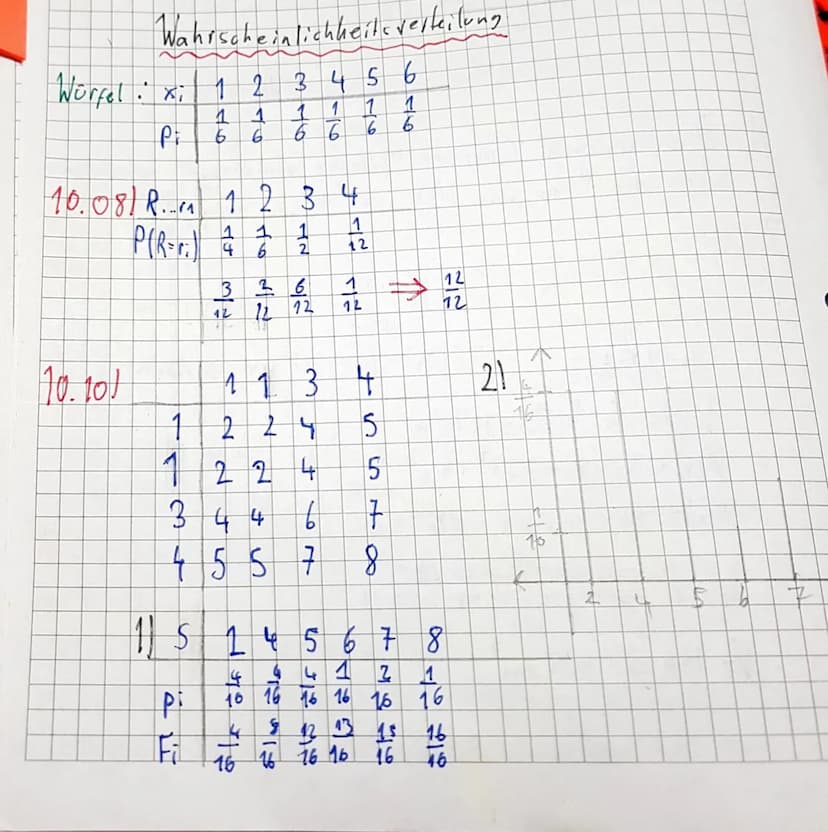 Wahrscheinlichkeitsverteilung
Würfel: xi 1 2 3 4 5 6
Pi 1/6 1/6 1/6 1/6 1/6 1/6
10.08) R...ri 1 2 3 4
P(R=ri) 1/4 1/6 1/2 1/12
3/12 2/12 6/12 1/12 ⇒ 12/12
10.10) 1 1 3 4
1 2 2 4 5
1 2 2 4 5
3 4 4 6 7
4 5 5 7 8
2)
4/16
1/16
2 4 5 6 7
1) S 2 4 5 6 7 8
Pi 4/16 4/16 4/16 1/16 2/16 1/16
Fi 4/16 8/16 12/16 13/16 15/16 16/16